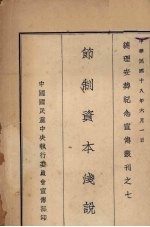 中華民國十八年六月一日
總理安葬紀念宣傳叢刊之七
節制資本淺說
中國國民黨中央執行委員會宣傳部印